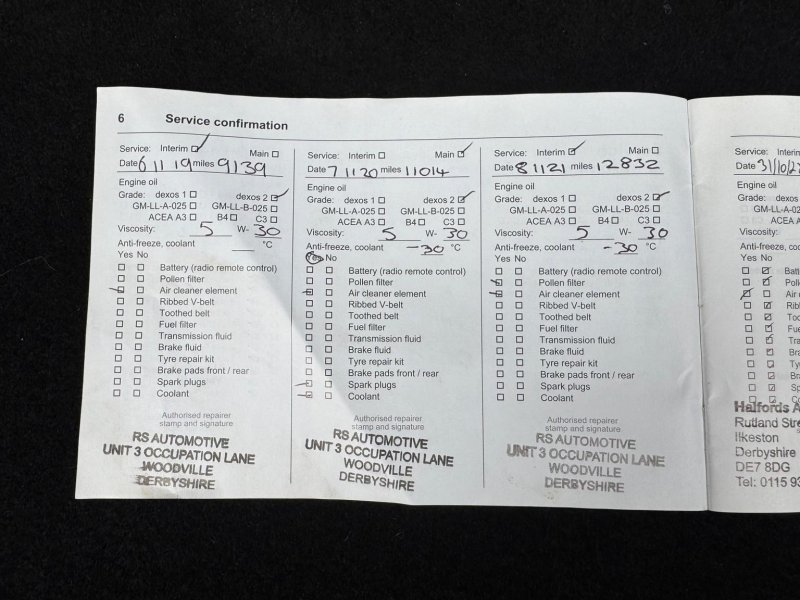 6 Service confirmation
Service: Interim Main
Date 6 11 19 miles 9139
Engine oil
Grade: dexos 1 dexos 2
GM-LL-A-025 GM-LL-B-025
ACEA A3 B4 C3
Viscosity: 5 W- 30
Anti-freeze, coolant — °C
Yes No
Battery (radio remote control)
Pollen filter
Air cleaner element
Ribbed V-belt
Toothed belt
Fuel filter
Transmission fluid
Brake fluid
Tyre repair kit
Brake pads front / rear
Spark plugs
Coolant
Authorised repairer
stamp and signature
RS AUTOMOTIVE
UNIT 3 OCCUPATION LANE
WOODVILLE
DERBYSHIRE
Service: Interim Main
Date 7 11 20 miles 11014
Engine oil
Grade: dexos 1 dexos 2
GM-LL-A-025 GM-LL-B-025
ACEA A3 B4 C3
Viscosity: 5 W- 30
Anti-freeze, coolant -30 °C
Yes No
Battery (radio remote control)
Pollen filter
Air cleaner element
Ribbed V-belt
Toothed belt
Fuel filter
Transmission fluid
Brake fluid
Tyre repair kit
Brake pads front / rear
Spark plugs
Coolant
Authorised repairer
stamp and signature
RS AUTOMOTIVE
UNIT 3 OCCUPATION LANE
WOODVILLE
DERBYSHIRE
Service: Interim Main
Date 8 11 21 miles 12832
Engine oil
Grade: dexos 1 dexos 2
GM-LL-A-025 GM-LL-B-025
ACEA A3 B4 C3
Viscosity: 5 W- 30
Anti-freeze, coolant -30 °C
Yes No
Battery (radio remote control)
Pollen filter
Air cleaner element
Ribbed V-belt
Toothed belt
Fuel filter
Transmission fluid
Brake fluid
Tyre repair kit
Brake pads front / rear
Spark plugs
Coolant
Authorised repairer
stamp and signature
RS AUTOMOTIVE
UNIT 3 OCCUPATION LANE
WOODVILLE
DERBYSHIRE
Service:
Date 31/10/2
Engine oil
Grade: de
GM-LL-A-02
ACEA A
Viscosity:
Anti-freeze, co
Yes No
Ba
Poll
Air
Rib
To
Fue
Tra
Br
Ty
Bra
Sp
Co
Halfords A
Rutland Stre
Ilkeston
Derbyshire
DE7 8DG
Tel: 0115 93